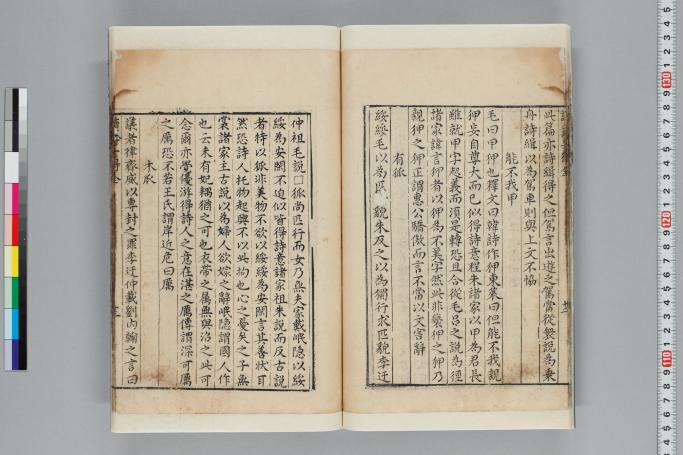 此篇亦詩緝得之但駕言出遊之駕當從衆説為乗
舟詩緝以為駕車則與上文不協
能不我甲
毛曰甲狎也釋文曰韓詩作狎東萊曰但能不我親
狎妄自尊大而已似得詩意程朱諸家以甲為君長
雖就甲字起義而須是轉恐且合從毛吕之説為徑
諸家諱言狎者以狎為不美字然此非䙝狎之狎乃
親狎之狎正謂惠公驕傲而言不當以文害辭
有狐
綏綏毛以為匹 貌朱反之以為獨行求匹貌李迂
仲祖毛説□狐尚匹行而女乃無夫家戴岷隱以綏
綏為安閒不迫似皆得詩意諸家祖朱説而反古説
者特以狐非美物不欲以綏綏為安閒言其善狀耳
然恐詩人托物起興不以此拘也心之憂矣之子無
裳諸家主古説以為婦人欲嫁之辭岷隱謂國人作
也云未有妃耦猶之可也衣帶之属無與治之此可
念爾亦學優游得詩人之意在淇之厲傳謂深可厲
之厲恐不若王氏謂岸近危曰厲
木瓜
議者律齊威以專封之罪李迂仲載劉内翰之言曰
130
120
110